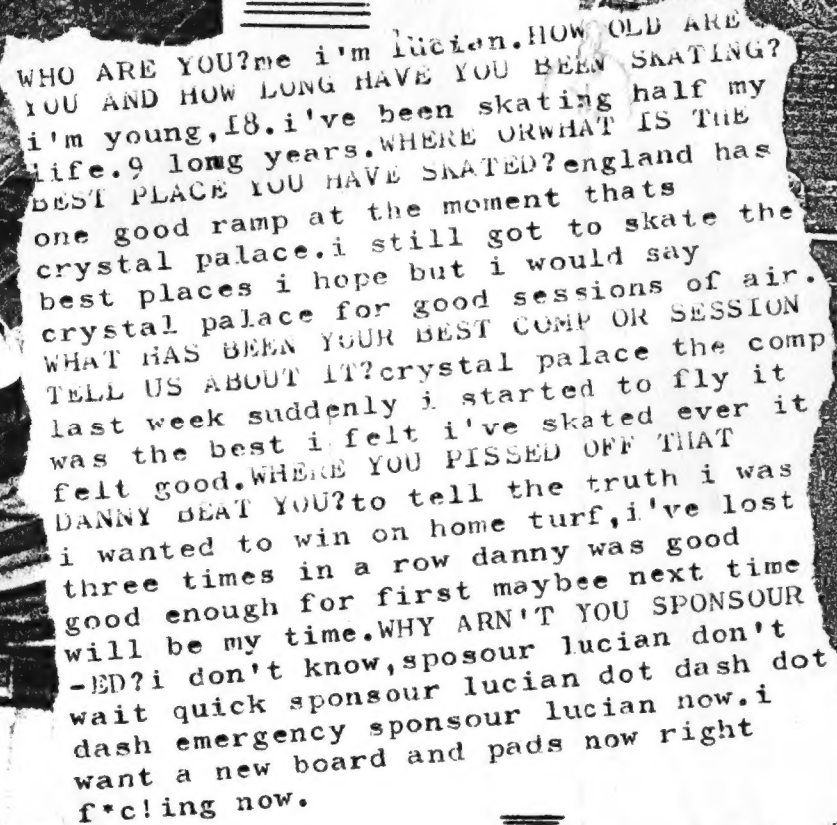 WHO ARE YOU?me i'm lucian.HOW OLD ARE
YOU AND HOW LONG HAVE YOU BEEN SKATING?
i'm young,I8.i've been skating half my
life.9 lomg years.WHERE ORWHAT IS THE
BEST PLACE YOU HAVE SKATED?england has
one good ramp at the moment thats
crystal palace.i still got to skate the
best places i hope but i would say
crystal palace for good sessions of air.
WHAT HAS BEEN YOUR BEST COMP OR SESSION
TELL US ABOUT IT?crystal palace the comp
last week suddenly i started to fly it
was the best i felt i've skated ever it
felt good.WHERE YOU PISSED OFF THAT
DANNY BEAT YOU?to tell the truth i was
i wanted to win on home turf,i've lost
three times in a row danny was good
good enough for first maybee next time
will be my time.WHY ARN'T YOU SPONSOUR
-ED?i don't know,sposour lucian don't
wait quick sponsour lucian dot dash dot
dash emergency sponsour lucian now.i
want a new board and pads now right
f*c!ing now.